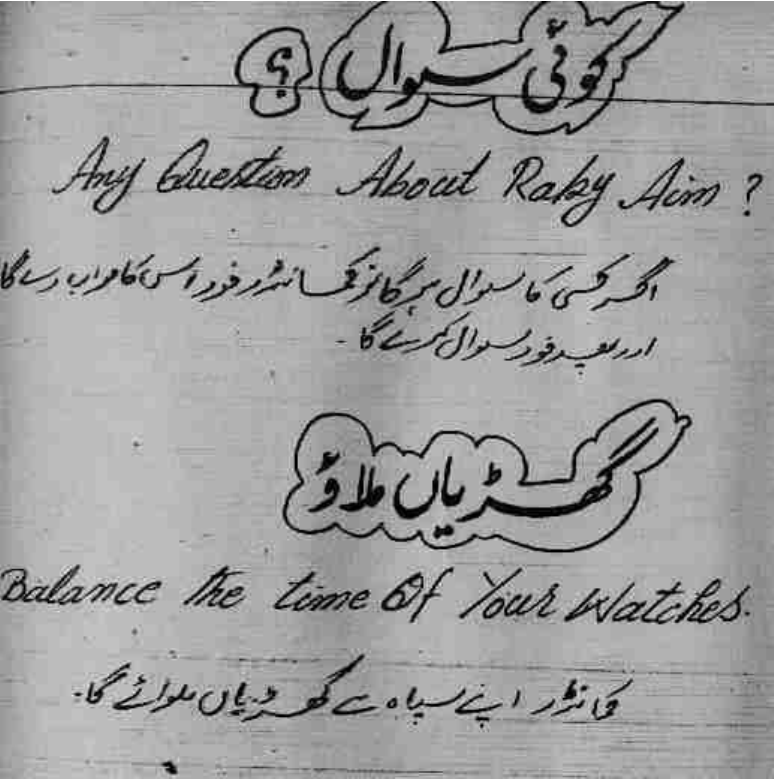 کوئی سوال ؟
Any Question About Raky Aim ?
اگر کسی کا سوال ہو گا تو کمانڈر خود اس کا جواب دے گا
اور بعد خود سوال کرے گا۔
گھڑیاں ملاؤ
Balance the time Of Your Watches.
کمانڈر اپنے سپاہ سے گھڑیاں ملوائے گا۔